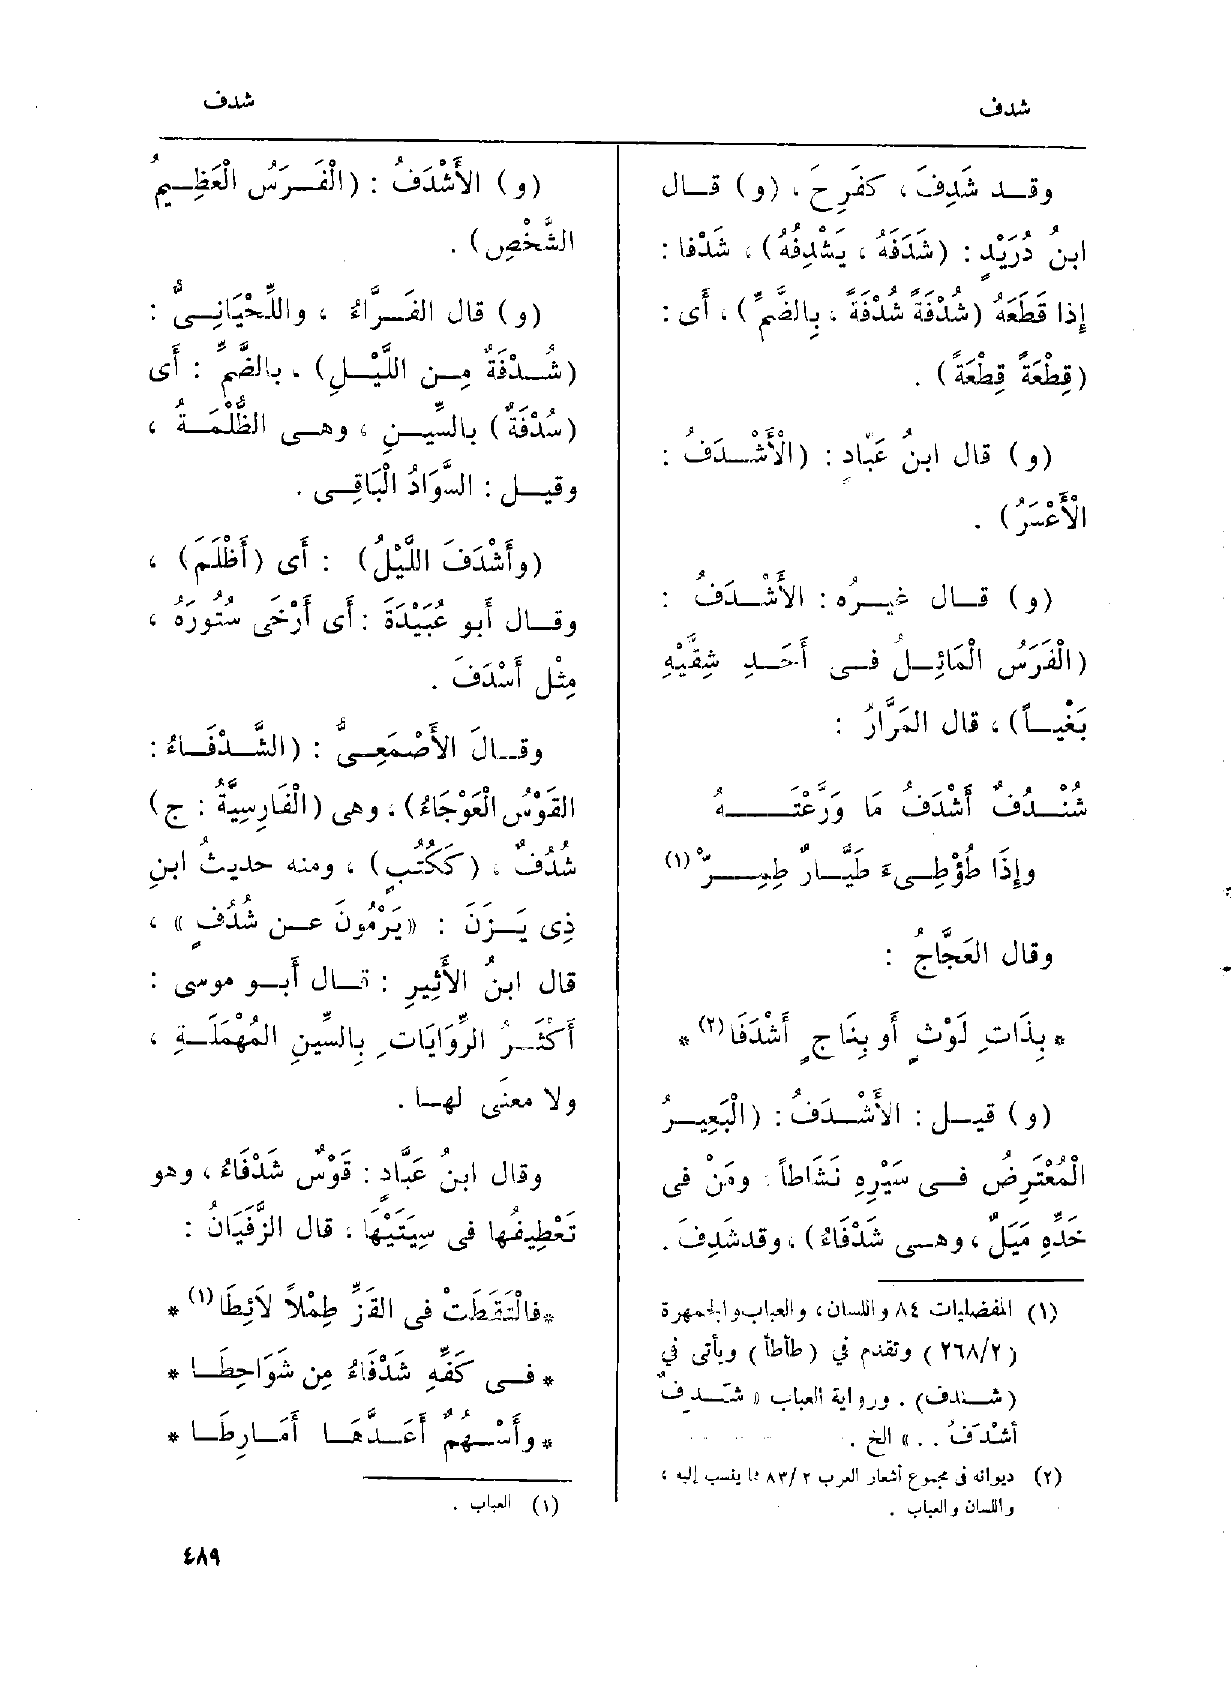 شدف
شدف
وقد شَدِفَ ، كفَرِحَ ، (و) قال
ابنُ دُرَيْدٍ : (شَدَفَهُ ، يَشْدِفُهُ) ، شَدْفا :
إذا قَطَعَهُ (شُدْفَةً شُدْفَةً ، بالضَّمِّ) ، أى :
(قِطْعَةً قِطْعَةً) .
(و) قال ابنُ عَبّادٍ : (الْأَشْدَفُ :
الْأَعْسَرُ) .
(و) قال غيرُه : الأَشْدَفُ :
(الْفَرَسُ الْمَائِلُ فى أَحَدِ شِقَّيْهِ
بَغْياً) ، قال المَرَّارُ :
شُنْدُفٌ أَشْدَفُ مَا وَرَّعْتَهُ
وإِذَا طُؤْطِىءَ طَيَّارٌ طِمِرّْ (١)
وقال العَجَّاجُ :
* بِذَاتِ لَوْثٍ أو بِنَاجٍ أَشْدَفَا (٢) *
(و) قيل : الأَشْدَفُ : (الْبَعِيرُ
الْمُعْتَرِضُ فى سَيْرِهِ نَشَاطاً . ومَنْ فى
خَدِّهِ مَيَلٌ ، وهى شَدْفَاءُ) ، وقد شَدِفَ .
(١) المفضليات ٨٤ واللسان ، والعباب والجمهرة
(٢٦٨/٢) وتقدم في (طأطأ) ويأتى في
(شندف) . ورواية العباب « شَنْدفٌ
أشْدَفُ . . » الخ .
(٢) ديوانه فى مجموع أشعار العرب ٨٣/٢ مما ينسب إليه ،
واللسان والعباب .
(و) الأَشْدَفُ : (الْفَرَسُ الْعَظِيمُ
الشَّخْصِ) .
(و) قال الفَرَّاءُ ، واللِّحْيَانِىُّ :
(شُدْفَةٌ مِن اللَّيْلِ) ، بالضَّمِّ : أَى
(سُدْفَةٌ) بالسِّينِ ، وهى الظُّلْمَةُ ،
وقيل : السَّوَادُ الْبَاقِى .
(وأَشْدَفَ اللَّيْلُ) : أَى (أَظْلَمَ) ،
وقال أبو عُبَيْدَةَ : أَى أَرْخَى سُتُورَهُ ،
مِثْل أَسْدَفَ .
وقالَ الأَصْمَعِىُّ : (الشَّدْفَاءُ :
القَوْسُ الْعَوْجَاءُ) ، وهى (الْفَارِسِيَّةُ : ج)
شُدُفٌ ، (كَكُتُبٍ) ، ومنه حديثُ ابنِ
ذِى يَزَنَ : «يَرْمُونَ عن شُدُفٍ» ،
قال ابنُ الأَثِيرِ : قال أَبو موسى :
أَكْثَرُ الرِّوَايَاتِ بِالسِّينِ المُهْمَلَةِ ،
ولا معنَى لها .
وقال ابنُ عَبَّادٍ : قَوْسٌ شَدْفَاءُ ، وهو
تَعْطِيفُها فى سِيَتَيْهَا ، قال الزَّفَيَانُ :
* فالْتَقَطَتْ فى القَزِّ طِمْلاً لَائِطَا (١) *
* فى كَفِّهِ شَدْفَاءُ مِن شَوَاحِطَا *
* وأَسْهُمٌ أَعَدَّهَا أَمَارِطَا *
(١) العباب .
٤٨٩